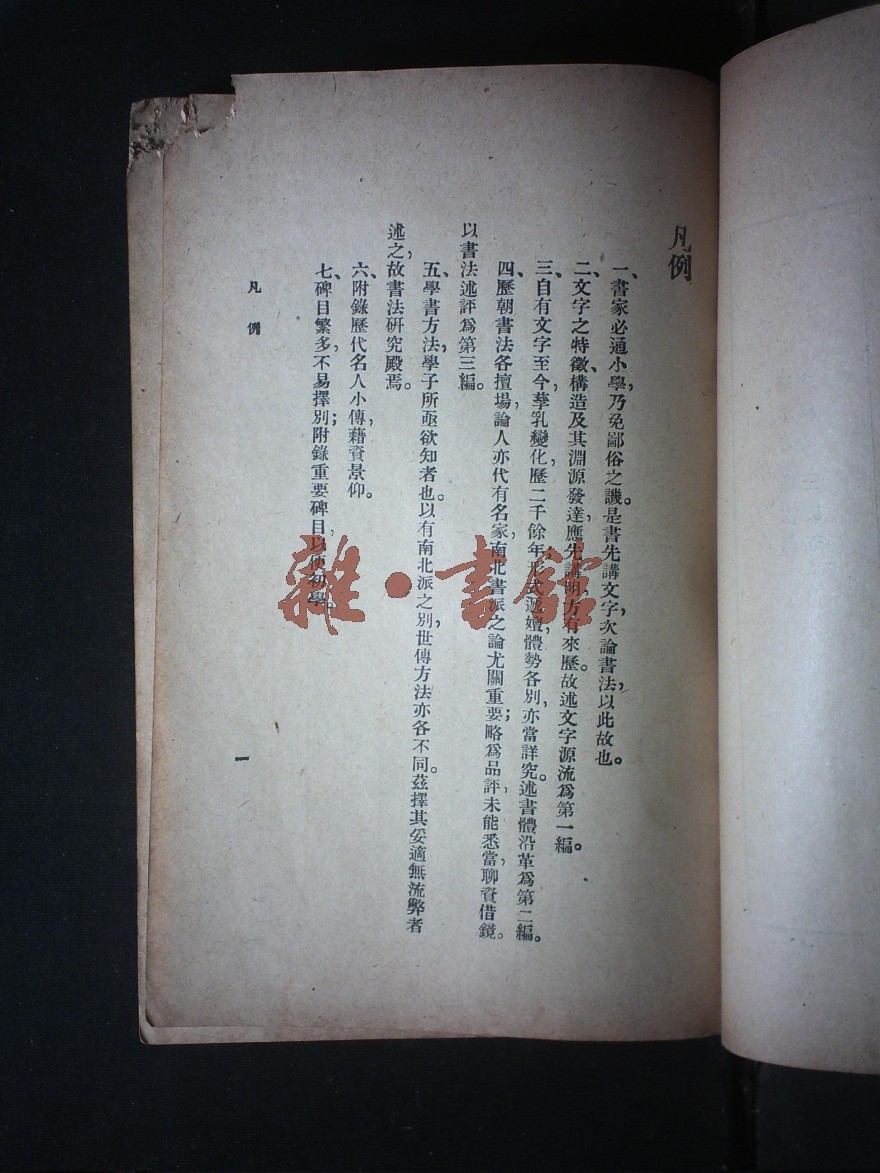 凡例
一、書家必通小學，乃免鄙俗之譏。是書先講文字，次論書法，以此故也。
二、文字之特徵、構造及其淵源發達，應先講明，方有來歷。故述文字源流爲第一編。
三、自有文字至今，孳乳變化，歷二千餘年，形式遞嬗，體勢各別，亦當詳究。述書體沿革爲第二編。
四、歷朝書法各擅場，論人亦代有名家，南北書派之論尤關重要；略爲品評，未能悉當，聊資借鏡。
以書法述評爲第三編。
五、學書方法，學子所亟欲知者也。以有南北派之別，世傳方法亦各不同。茲擇其妥適無流弊者
述之，故書法研究殿焉。
六、附錄歷代名人小傳，藉資景仰。
七、碑目繁多，不易擇別；附錄重要碑目，以便初學。
凡例
一
雜·書館